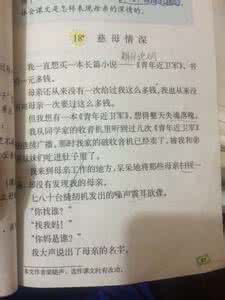 体会课文是怎样表现母亲的深情的。
18* 慈母情深
我一直想买一本长篇小说——《青年近卫军》，书
一元多钱。
母亲还从来没有一次给过我这么多钱。我也从来没
有向母亲一次要过这么多钱。
但我想有一本《青年近卫军》，想得整天失魂落魄。
我从同学家的收音机里听到过几次《青年近卫军》
连续广播。那时我家的破收音机已经卖了，被我和弟
弟妹妹们吃进肚子里了。
我来到母亲工作的地方，呆呆地将那些母亲扫视一
却没有发现我的母亲。
七八十台缝纫机发出的噪声震耳欲聋。
“你找谁？”
“找我妈！”
“你妈是谁？”
我大声说出了母亲的名字。
本文作者梁晓声，选作课文时有改动。